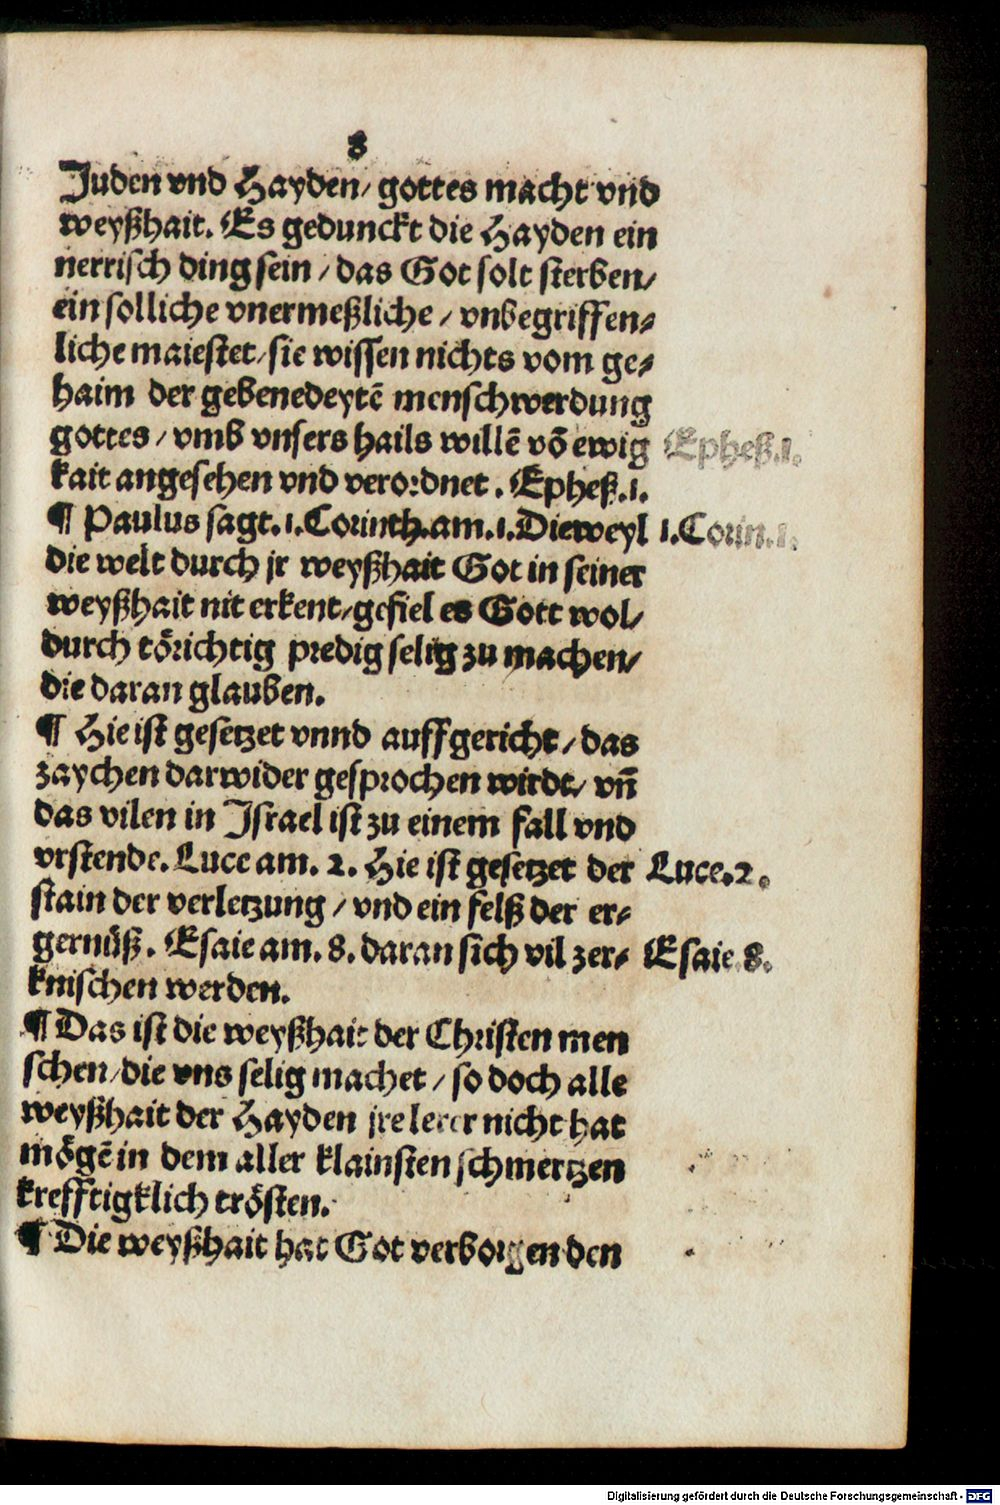 8
Juden vnd Hayden / gottes macht vnd
weyßhait. Es gedunckt die Hayden ein
nerrisch ding sein / das Got solt sterben /
ein solliche vnermeßliche / vnbegriffen⸗
liche maiestet / sie wissen nichts vom ge⸗
haim der gebenedeytē menschwerdung
gottes / vmb vnsers hails willē vō ewig Epheß.1.
kait angesehen vnd verordnet. Epheß.1.
¶ Paulus sagt.1.Corinth.am.1.Dieweyl 1.Corin.1.
die welt durch jr weyßhait Got in seiner
weyßhait nit erkent / gefiel es Gott wol /
durch törichtig predig selig zu machen /
die daran glauben.
¶ Hie ist gesetzet vnnd auffgericht / das
zaychen darwider gesprochen wirdt / vn̄
das vilen in Israel ist zu einem fall vnd
vrstende. Luce am. 2. Hie ist gesetzet der Luce.2.
stain der verletzung / vnd ein felß der er⸗
gernüß. Esaie am. 8. daran sich vil zer⸗ Esaie.8.
knischen werden.
¶ Das ist die weyßhait der Christen men
schen / die vns selig machet / so doch alle
weyßhait der Hayden jre lerer nicht hat
mögē in dem aller klainsten schmertzen
krefftigklich trösten.
¶ Die weyßhait hat Got verborgen den
Digitalisierung gefördert durch die Deutsche Forschungsgemeinschaft - DFG